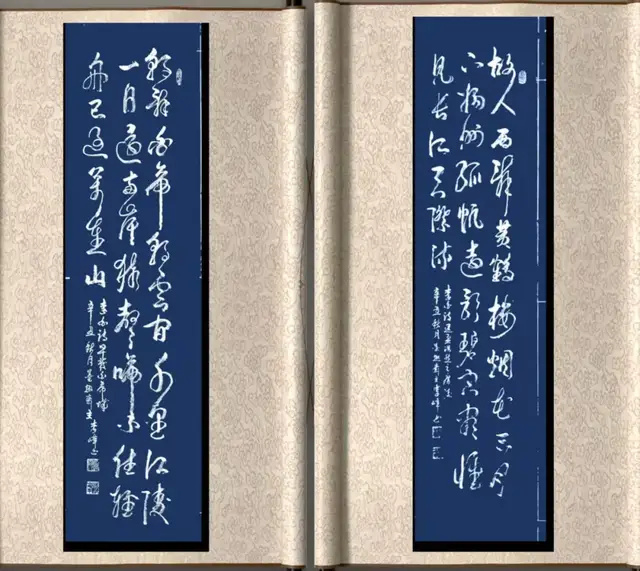 故人西辭黃鶴樓煙花三月
下揚州孤帆遠影碧空盡惟
見長江天際流
李白詩送孟浩然之廣陵
辛丑秋月 齋主李峰書
朝辭白帝彩雲間千里江陵
一日還兩岸猿聲啼不住輕
舟已過萬重山
李白詩早發白帝城
辛丑秋月 齋主李峰書